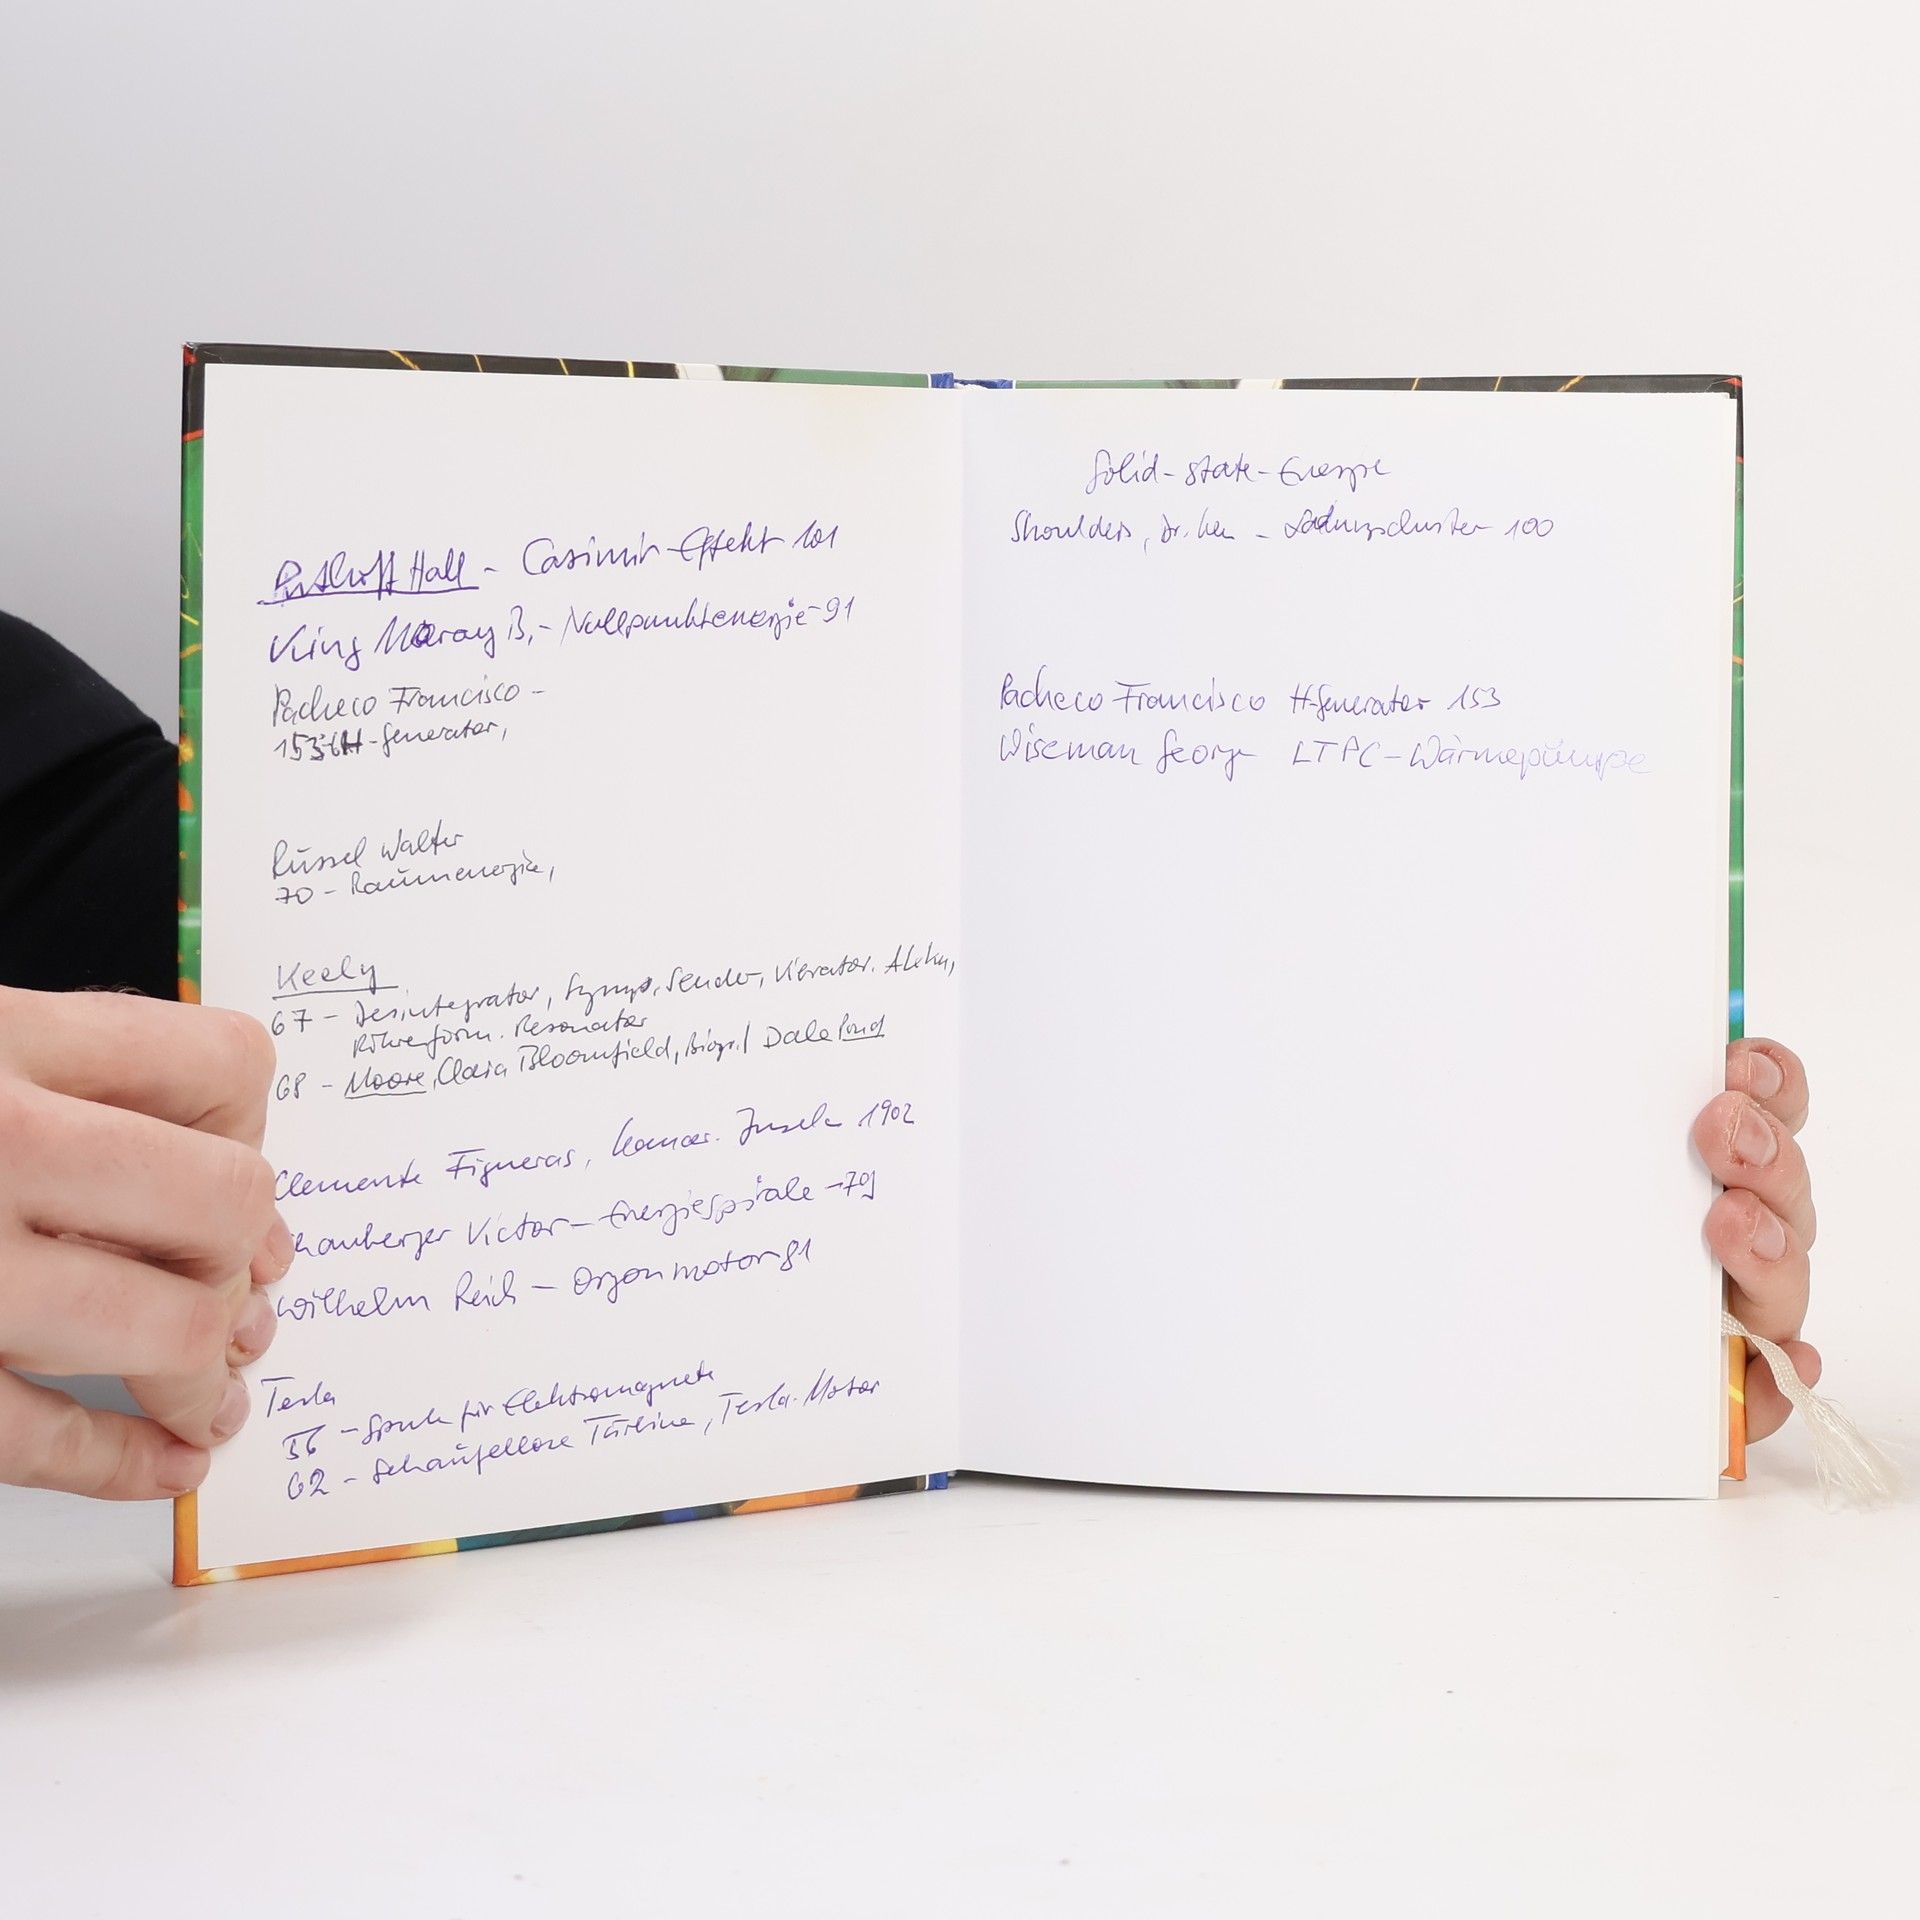 Puthoff Hall - Casimir-Effekt 101
King Moray B. - Nullpunktenergie - 91
Pacheco Francisco -
153 - H-Generator,
Russel Walter
70 - Raumenergie,
Keely
67 - Desintegrator, Symp. Sender, Vibrator.
Röhrenförm. Resonator
68 - Moore, Clara Bloomfield, Biogr. / Dale Pond
Clemente Figueras, Kanar. Inseln 1902
Victor - Energiespirale - 79
Wilhelm Reich - Orgonmotor 81
Tesla
56 - Spule für Elektromagnete
62 - Schaufellose Turbine, Tesla-Motor
Solid-state-Energie
Shoulders, Dr. Ken - Ladungscluster 100
Pacheco Francisco H-Generator 153
Wiseman George LTPC - Wärmepumpe